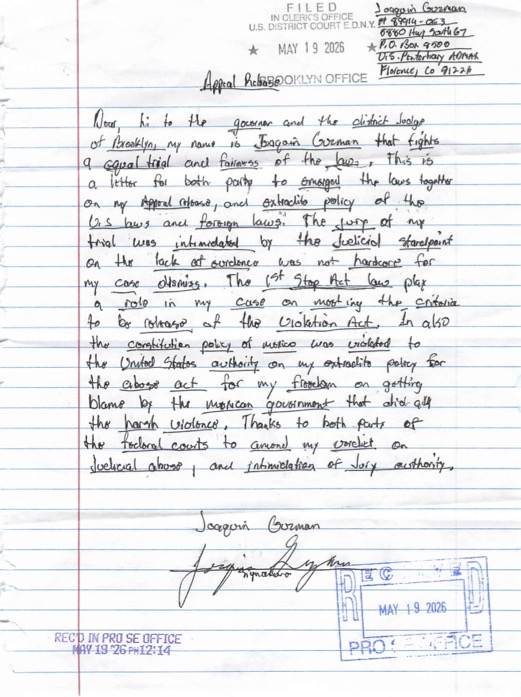 FILED
IN CLERK'S OFFICE
U.S. DISTRICT COURT E.D.N.Y.
★ MAY 19 2026 ★
BROOKLYN OFFICE
Joaquin Guzman
# 89914-053
5880 Hwy South 67
P.O. Box 8500
U.S. Penitentiary ADMAX
Florence, Co 81226
Appeal Release
Dear, hi to the governor and the district Judge
of Brooklyn, my name is Joaquin Guzman that fights
a equal trial and fairness of the laws. This is
a letter for both party to emerged the laws together
on my Appeal release, and extradite policy of the
U.S laws and foreign laws. The Jury of my
trial was intimidated by the Judicial
on the lack of evidence was not hardcore for
my case dismiss. The 1st Stop Act law play
a role in my case on meeting the criteria
to be release of the Violation Act. In also
the constitution policy of mexico was violated to
the United States authority on my extradite policy for
the abuse act for my freedom on getting
blame by the mexican government that did all
the harsh violence. Thanks to both parts of
the federal courts to amend my verdict on
Judicial abuse, and intimidation of Jury authority.
Joaquin Guzman
REC'D IN PRO SE OFFICE
MAY 19 '26 PM12:14
RECEIVED
MAY 19 2026
PRO SE OFFICE